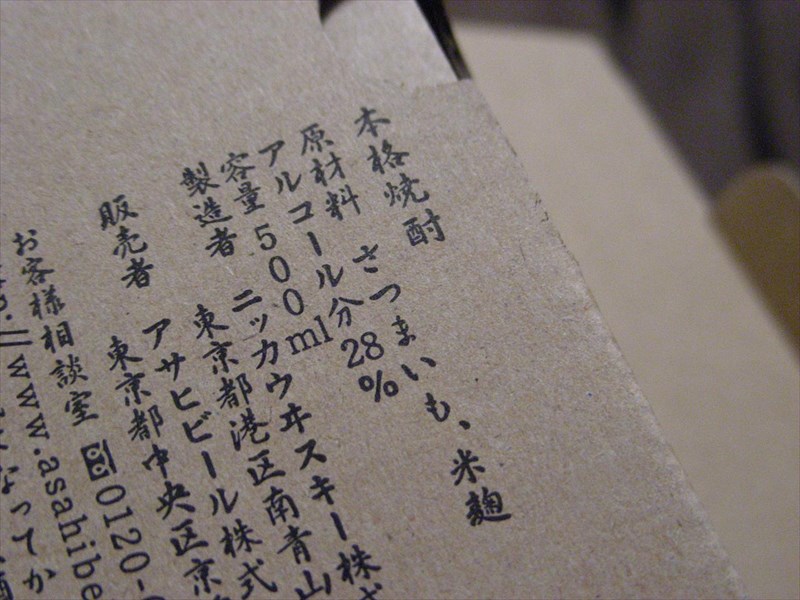 本格焼酎
原材料 さつまいも、米麹
アルコール分28%
容量500ml
製造者 ニッカウヰスキー株
東京都港区南青山
販売者 アサヒビール株式
東京都中央区京
お客様相談室 0120-
www.asahibe
なってか